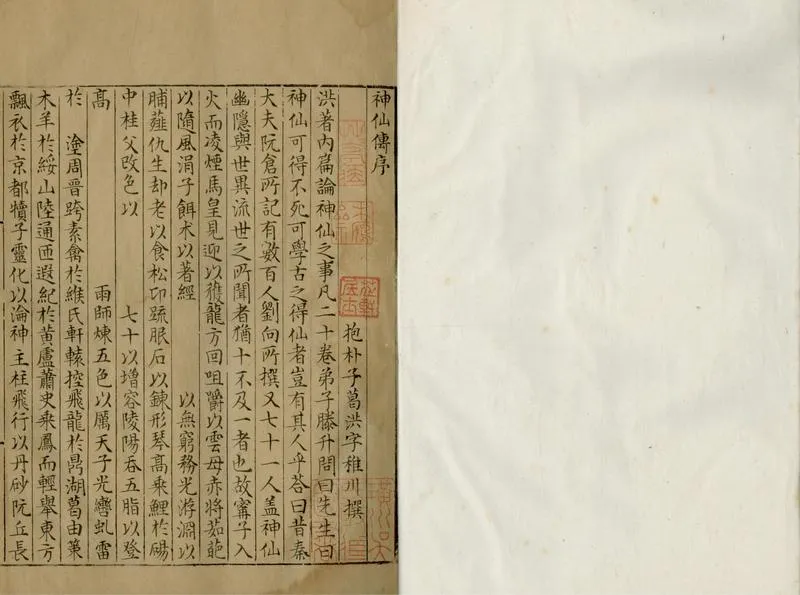 神仙傳序
抱朴子葛洪字稚川撰
洪著內篇論神仙之事凡二十卷弟子滕升問曰先生曰
神仙可得不死可學古之得仙者豈有其人乎荅曰昔秦
大夫阮倉所記有數百人劉向所撰又七十一人盖神仙
幽隱與世異流世之所聞者猶十不及一者也故甯子入
火而凌煙馬皇見迎以獲龍方回咀嚼以雲母赤將茹葩
以隨風涓子餌术以著經 以無窮務光游淵以
脯薤仇生却老以食松卭疏服石以鍊形琴高乘鯉於碭
中桂父改色以 七十以增容陵陽吞五脂以登
高 雨師煉五色以厲天子光轡虬雷
於 塗周晉跨素禽於維氏軒轅控飛龍於鼎湖葛由策
木羊於綏山陸通匝遐紀於黄盧蕭史乘鳳而輕舉東方
飄衣於京都犢子靈化以淪神主柱飛行以丹砂阮丘長